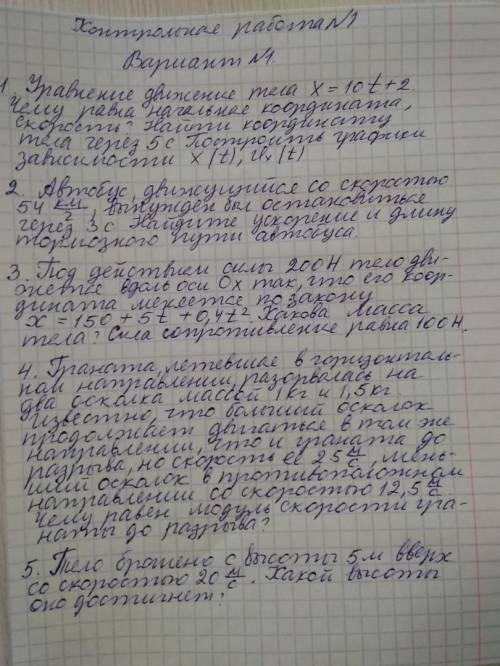 Контрольная работа №1
Вариант №1.
1. Уравнение движение тела x = 10t + 2.
Чему равна начальное координата,
скорость? Найти координату
тела через 5 с Построить графики
зависимости x(t), vₓ(t)
2. Автобус, движущийся со скоростью
54 км/г, вынужден был остановиться
через 3 с Найдите ускорение и длину
тормозного пути автобуса.
3. Под действием силы 200 Н тело дви-
жется вдоль оси Ох так, что его коор-
дината меняется по закону
x = 150 + 5t + 0,4t² Какова масса
тела? Сила сопротивление равна 100 Н.
4. Граната, летевшая в горизонталь-
ном направлении, разорвалась на
два осколка массой 1 кг и 1,5 кг
Известно, что больший осколок
продолжает двигаться в том же
направлении, что и граната до
разрыва, но скорость её 25 м/с, мень-
ший осколок в противоположном
направлении со скоростью 12,5 м/с
Чему равен модуль скорости гра-
наты до разрыва?
5. Тело брошено с высоты 5 м вверх
со скоростью 20 м/с. Какой высоты
оно достигнет?